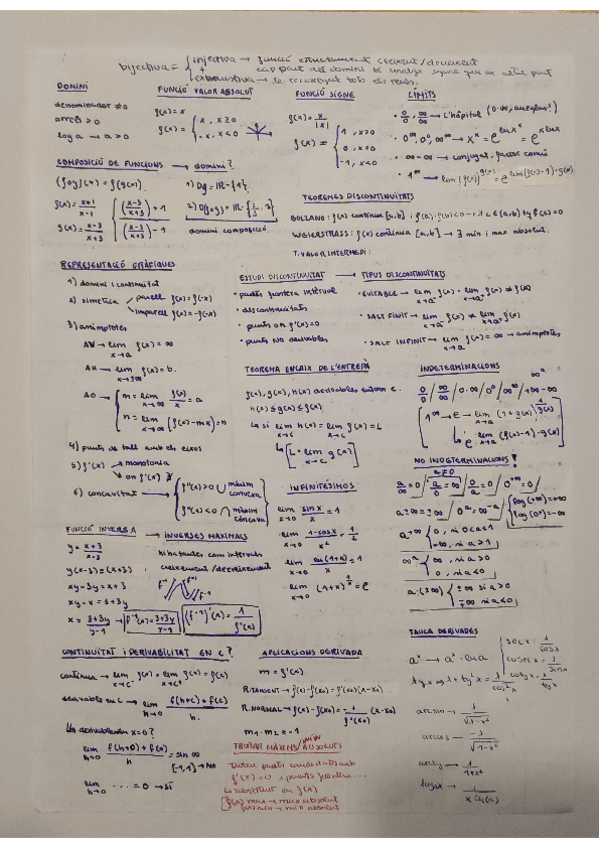 bijectiva = { injectiva → funció estrictament creixent/decreixent
cap part del domini té imatge igual que un altre punt
exhaustiva → te recorregut tots els reals.
DOMINI
denominador ≠ 0
arrels > 0
log a → a > 0
FUNCIÓ VALOR ABSOLUT
g(x) = x
g(x) = { x, x ≥ 0
-x, x < 0
FUNCIÓ SIGNE
g(x) = x/|x|
g(x) = { 1, x > 0
0, x = 0
-1, x < 0
LÍMITS
· 0/0, ∞/∞ → L'hôpital
· 0^∞, 0^0, ∞^∞ → x^x = e^{ln x^x} = e^{x ln x}
· ∞ - ∞ → conjugat, factor comú
· 1^∞ → lim (f(x))^{g(x)} = e^{lim (f(x)-1)·g(x)}
COMPOSICIÓ DE FUNCIONS → domini?
(f∘g)(x) = f(g(x))
f(x) = x+1/x-1
g(x) = x-3/x+3
(x-3/x+3) + 1
(x-3/x+3) - 1
1) Dg = IR - {1}
domini composició
TEOREMES DISCONTINUITATS
BOLZANO: f(x) contínua [a,b]
WEIERSTRASS: f(x) contínua [a,b] → ∃ min i max absolut.
T. VALOR INTERMEDI:
REPRESENTACIÓ GRÀFIQUES
1) domini i continuïtat
2) simetria parell f(x) = f(-x)
imparell f(x) = -f(-x)
3) asímptotes
AV → lim x→a f(x) = ∞
AH → lim x→±∞ f(x) = b.
AO → { m = lim x→∞ f(x)/x = a
n = lim x→∞ (f(x) - mx) = n
4) punts de tall amb els eixos
5) f'(x) → monotonia
on f'(x)
6) concavitat → { f''(x) > 0 ∪ mínim convexa
f''(x) < 0 ∩ màxim còncava
ESTUDI DISCONTINUITAT → TIPUS DISCONTINUÏTATS
· punts frontera interval
· discontinuïtats
· punts on f'(x) = 0
· punts NO derivables
· EVITABLE → lim x→a⁻ f(x) = lim x→a⁺ f(x) ≠ f(a)
· SALT FINIT → lim x→a⁻ f(x) ≠ lim x→a⁺ f(x)
· SALT INFINIT → lim x→a f(x) = ∞ → asímptotes
TEOREMA ENCAIX DE L'ENTREPÀ
f(x), g(x), h(x) derivables entorn c.
h(x) ≤ g(x) ≤ f(x)
si lim x→c h(x) = lim x→c f(x) = L
[L = lim x→c g(x)]
INDETERMINACIONS
0/0 / ∞/∞ / 0·∞ / 0^0 / ∞^∞ / +∞-∞
[1^∞ → e → lim x→a (1+g(x))^{1/g(x)}
e^{lim x→a (f(x)-1)·g(x)}]
NO INDETERMINACIONS!
a ≠ 0
a/∞ = 0 / a/0 = ∞ / 0/a = 0 / 0^{+∞} = 0 /
a ± ∞ = ± ∞ / 0^a, ∞^{-a} / { log(+∞) = +∞
log(0⁺) = -∞
a^{+∞} { 0, si 0<a<1
+∞, si a>1
∞^a { ∞, si a>0
0, si a<0
a·(±∞) { ±∞ si a>0
∓∞ si a<0
INFINITÉSIMOS
lim x→0 sin x/x = 1
lim x→0 1-cosx/x² = 1/2
lim x→0 ln(1+x)/x = 1
lim x→0 (1+x)^{1/x} = e
FUNCIÓ INVERSA → INVERSES MAXIMALS
y = x+3/x-3
y(x-3) = (x+3)
xy-3y = x+3
xy-x = 3+3y
x = 3+3y/y-1 → f⁻¹(x) = 3+3y/y-1
hi ha tantes com intervals
creixement/decreixement
f⁻¹ f⁻¹
(f⁻¹)'(x) = 1/f'(x)
CONTINUITAT I DERIVABILITAT EN C?
contínua → lim x→c⁻ f(x) = lim x→c⁺ f(x) = f(c)
derivable en c → lim h→0 f(h+c) - f(c)/h
Us derivable en x=0?
lim h→0 f(h+0) + f(a)/h = sin ∞
[-1,1] → NO
lim h→0 ... = 0 → SÍ
APLICACIONS DERIVADA
m = f'(x)
R. TANGENT → f(x)-f(x₀) = f'(x₀)(x-x₀)
R. NORMAL → f(x)-f(x₀) = -1/f'(x₀) (x-x₀)
m₁·m₂ = -1
TROBAR MÀXIMS/MÍN ABSOLUTS
Trobar punts candidats amb
f'(x) = 0 i punts frontera...
substituir en f(x)
f(x) max → max absolut
f(x) min → min absolut
TAULA DERIVADES
a^x → a^x · ln a
tg x → 1+tg²x = 1/cos²x
sec x = 1/cosx
cosec x = 1/sinx
cotg x = 1/tgx
arcsin → 1/√1-x²
arccos → -1/√1-x²
arctg → 1/1+x²
log_a x → 1/x ln(a)